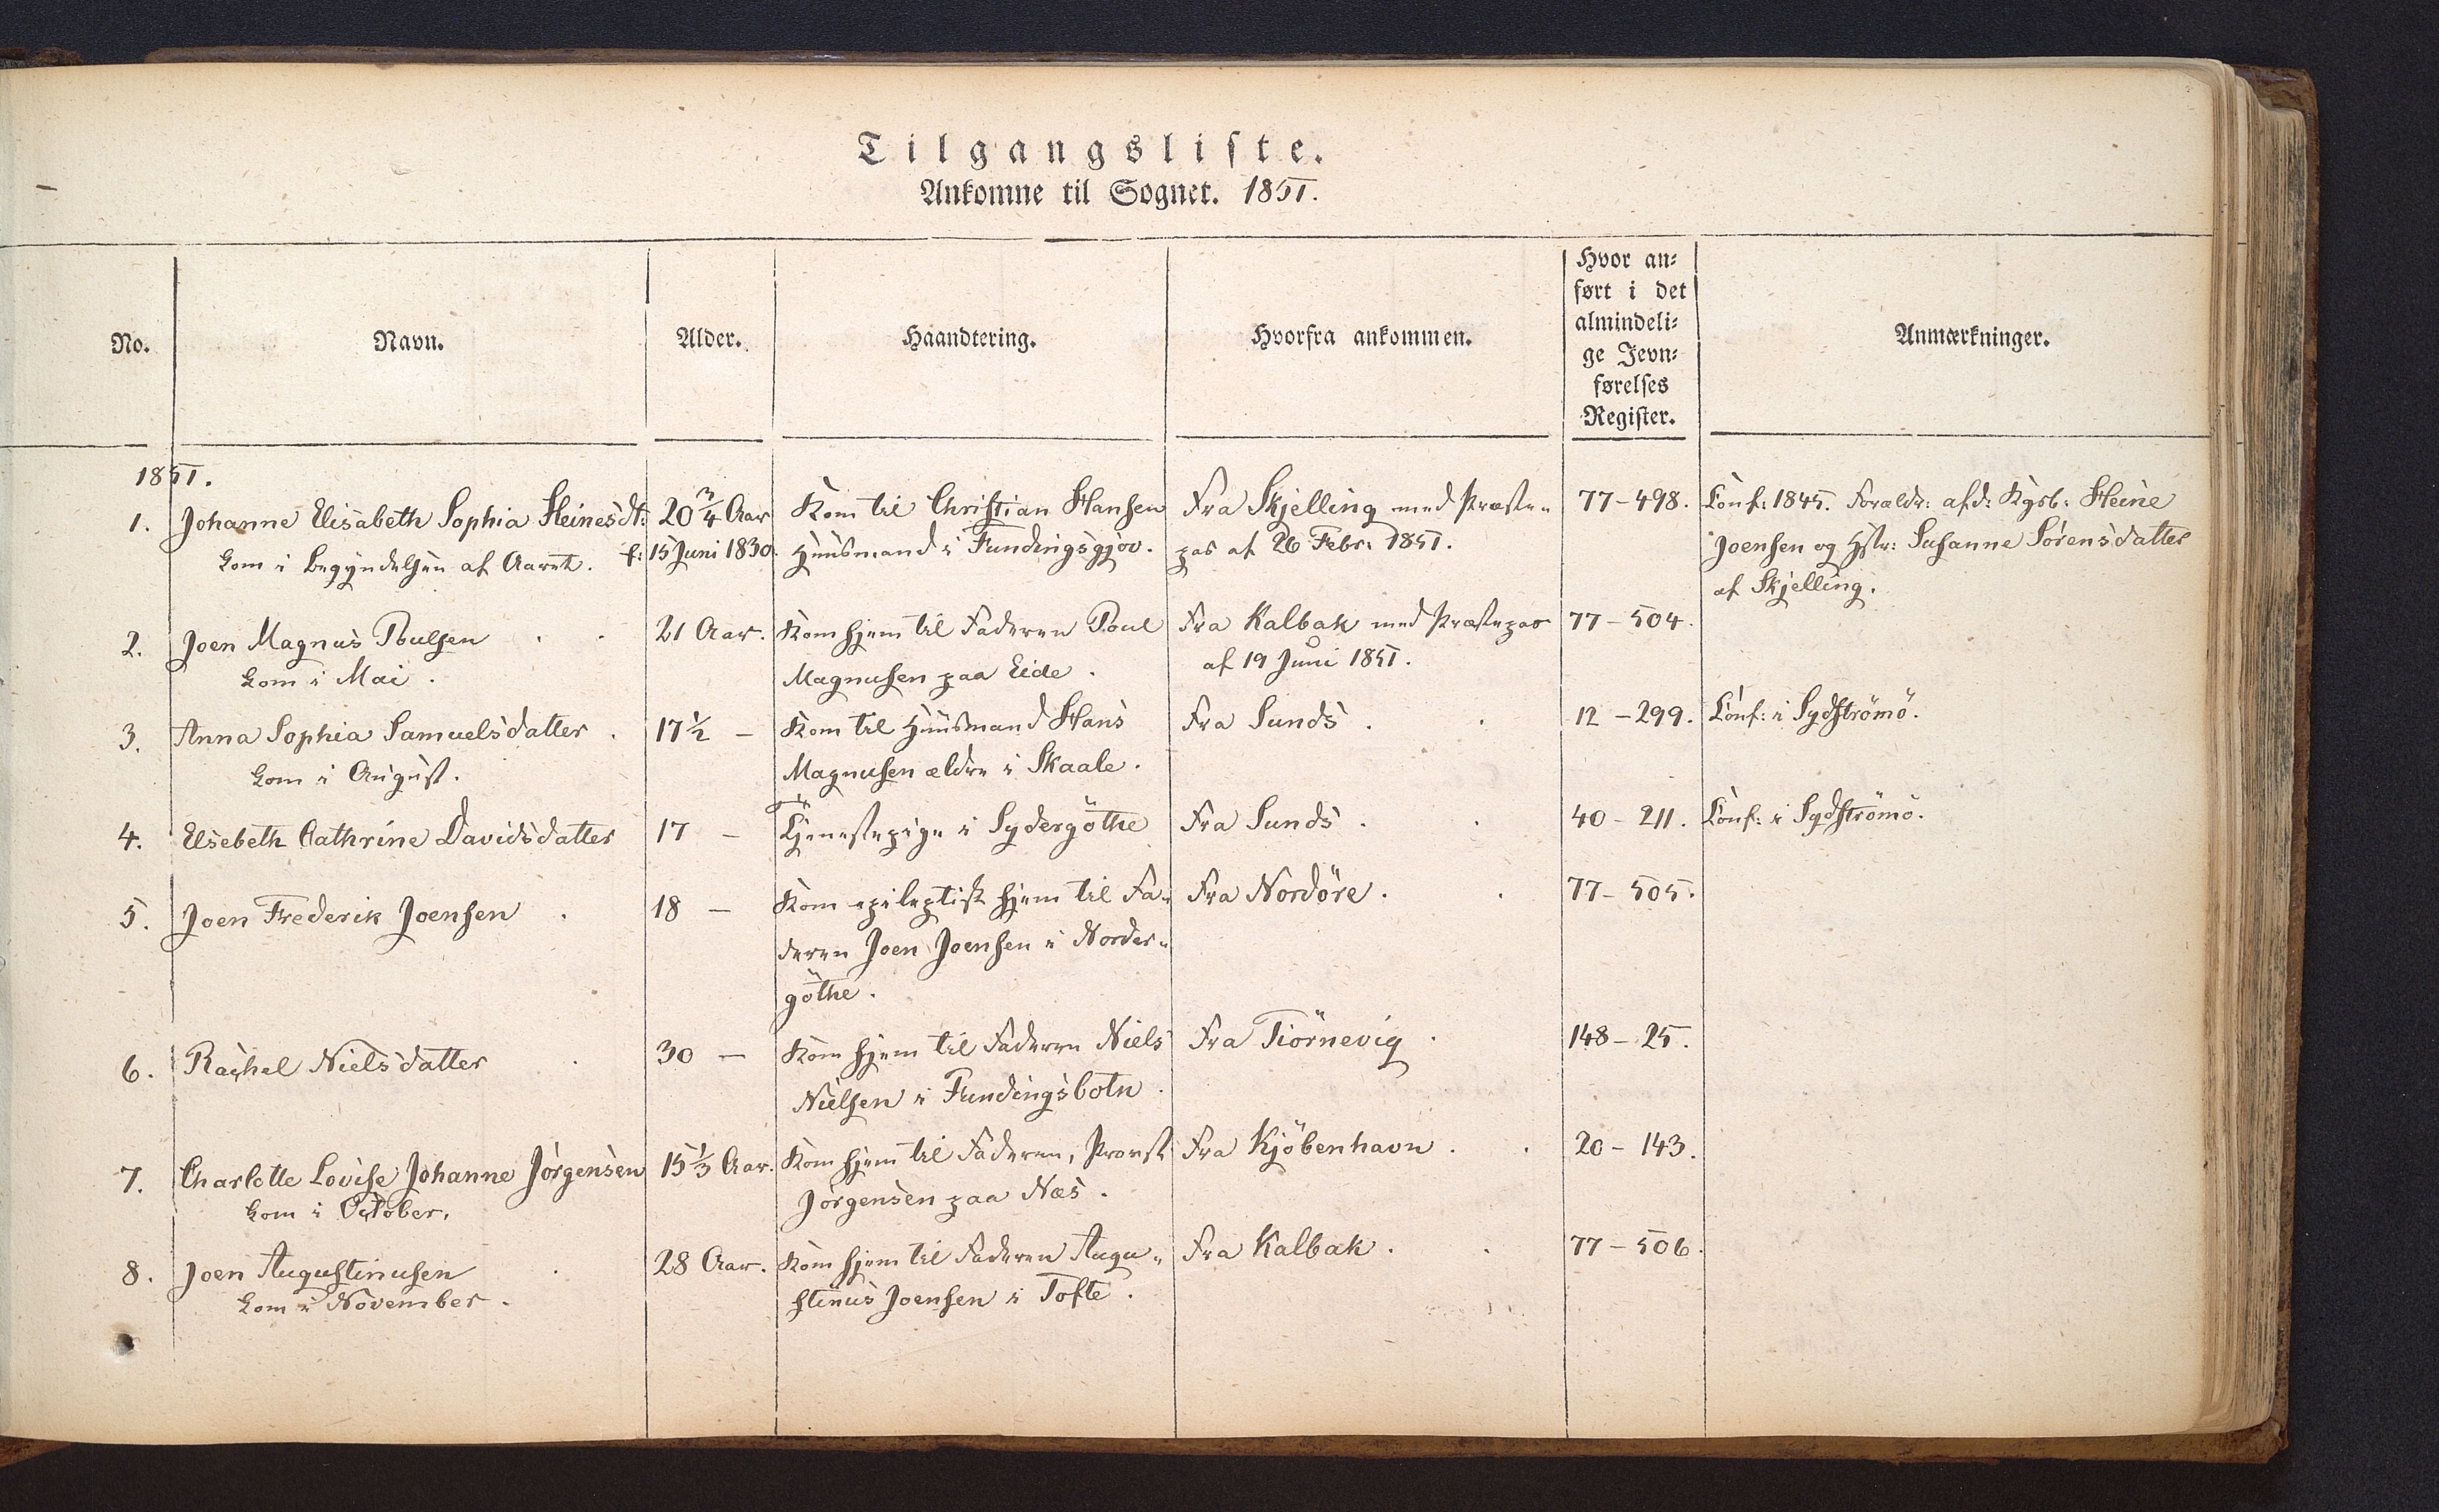 Tilgangsliste.
Ankomne til Sognet. 1851.
No.
Navn.
Alder.
Haandtering.
Hvorfra ankommen.
Hvor an-
ført i det
almindeli-
ge Jevn-
førelses
Register.
Anmærkninger.
1851.
1. Johanne Elisabeth Sophia Heinesdt:
kom i Begyndelsen af Aaret. f:
20 3/4 Aar
15 Juni 1830.
Kom til Christian Hansen
Huusmand i Fundingsgjov.
Fra Skjelling med Præste-
pas af 26 Febr: 1851.
77-498.
Conf: 1845. Forældr: afd: Kgsb: Heine
Joensen og Hstr: Susanne Sørensdatter
af Skjelling.
2. Joen Magnus Poulsen
kom i Mai.
21 Aar.
Kom hjem til Faderen Poul
Magnusen paa Eide.
Fra Kalbak med Præstepas
af 19 Juni 1851.
77-504.
3. Anna Sophia Samuelsdatter.
kom i August.
17 1/2 -
Kom til Huusmand Hans
Magnusen ældre i Skaale.
Fra Sunds.
12-299.
Conf: i Sydströmö.
4. Elsebeth Cathrine Davidsdatter
17 -
Tjenestepige i Sydergöthe
Fra Sunds.
40-211.
Conf: i Sydströmö.
5. Joen Frederik Joensen.
18 -
Kom epileptisk hjem til Fa-
deren Joen Joensen i Norder-
göthe.
Fra Nordöre.
77-505.
6. Rachel Nielsdatter
30 -
Kom hjem til Faderen Niels
Nielsen i Fundingsbotn.
Fra Tiörnevig.
148-25.
7. Charlotte Lovise Johanne Jörgensen
kom i October.
15 1/3 Aar.
Kom hjem til Faderen, Provst
Jörgensen paa Næs.
Fra Kjöbenhavn.
20-143.
8. Joen Augustinusen
kom i November.
28 Aar.
Kom hjem til Faderen Augu-
stinus Joensen i Tofte.
Fra Kalbak.
77-506.